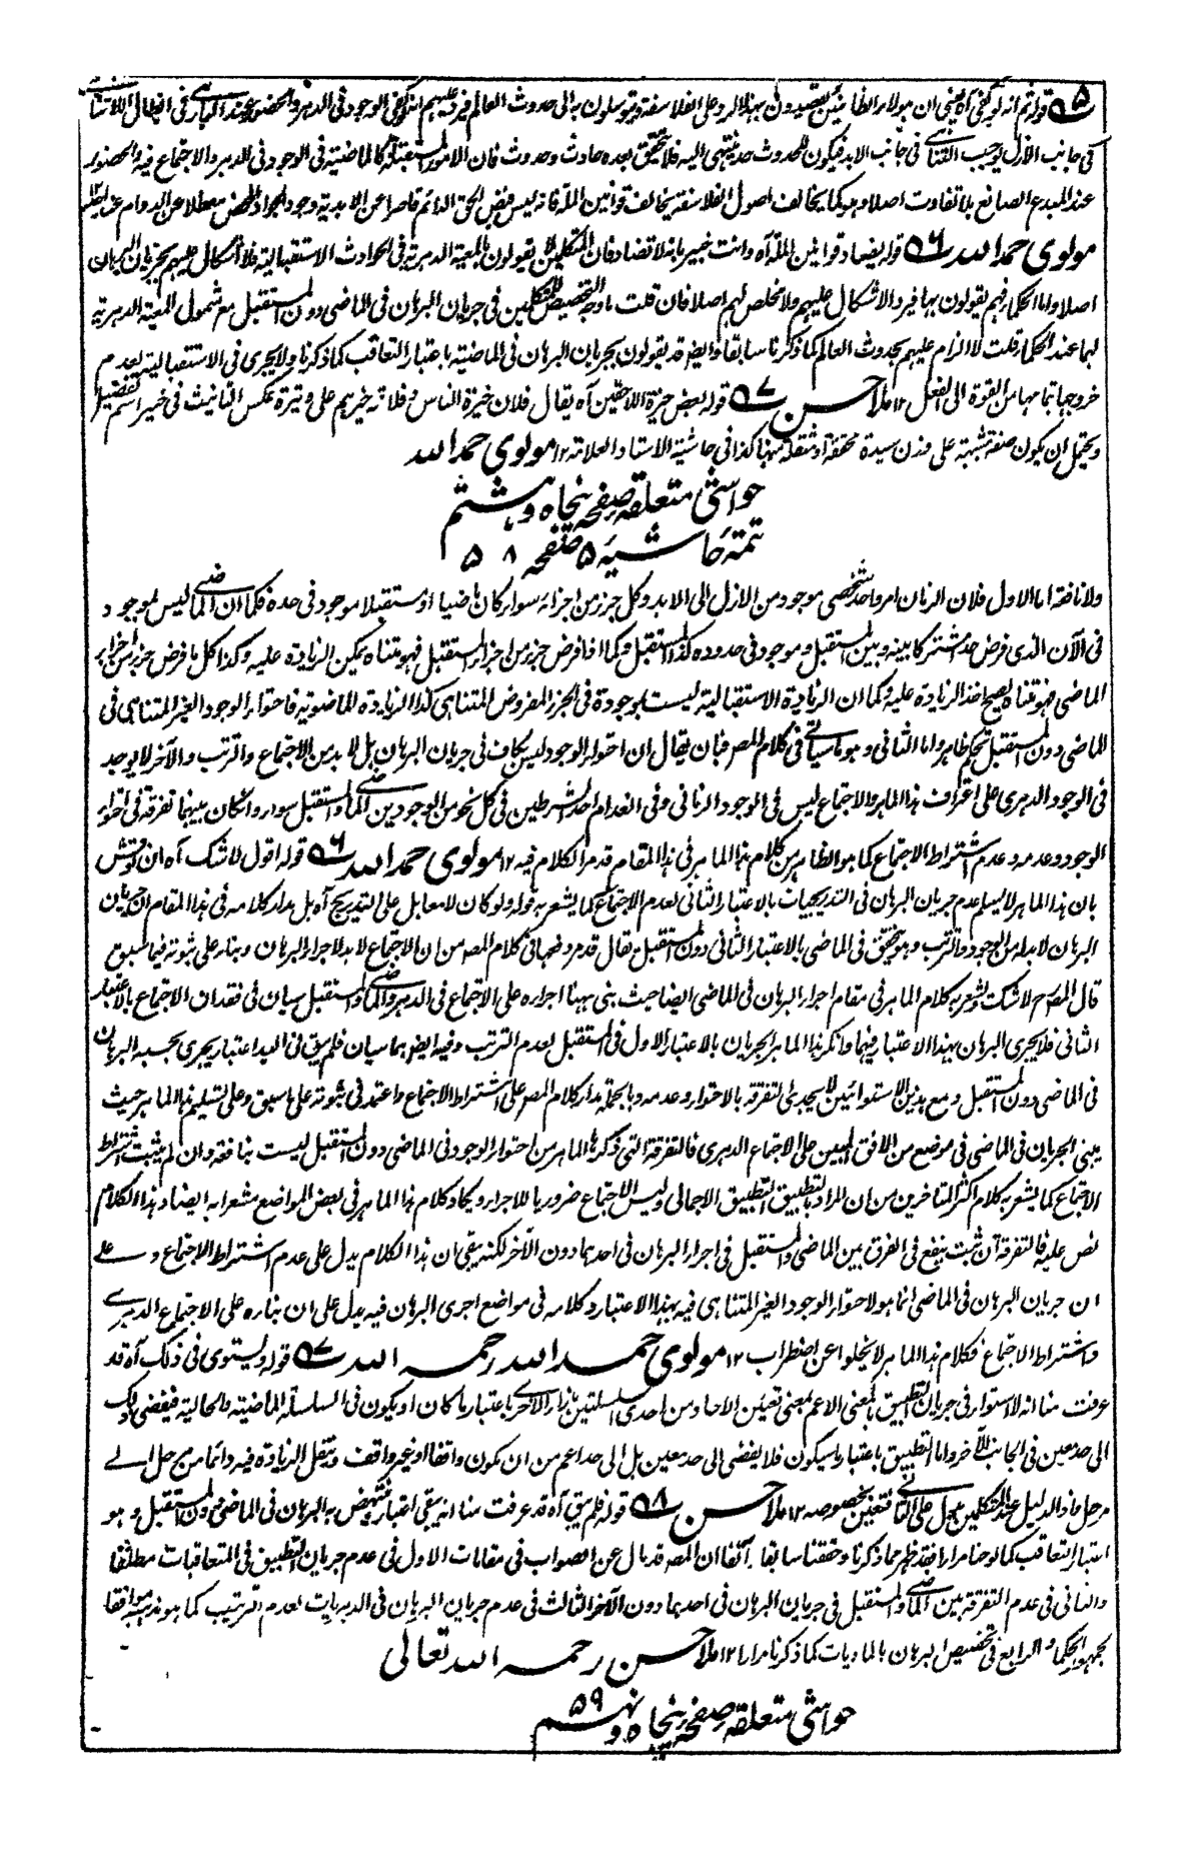 ۵ قوله ثم انه لو كفى آه يعنى ان هؤلاء الظانين يقصدون بهذا الرد على الفلاسفة ويتوسلون به الى حدوث العالم فيرد عليهم انه لو كفى الوجود فى الدهر والحضور عند البارى فى ابطال اللاتناهى
فى جانب الازل لوجب التناهى فى جانب الابد فيكون للحدوث حد ينتهى اليه فلا يتحقق بعده حادث وحدوث فان الامور المستقبلة كالماضية فى الوجود فى الدهر والاجتماع فيه والحضور
عند المبدع الصانع بلا تفاوت اصلا وهو كما يخالف اصول الفلاسفة يخالف قوانين الملة فانه ليس فيض الحق الدائم قاصرا عن الابدية وجود الجواد المحض معطلا عن الدوام عند اهلها
مولوى حمد الله ۵۶ قوله يضاد قوانين الملة آه وانت خبير بانه لا تضاد فان المتكلمين لا يقولون بالمعية الدهرية فى الحوادث الاستقبالية فلا اشكال عليهم بجريان البرهان
اصلا واما الحكماء فهم يقولون بها فيرد الاشكال عليهم ولا مخلص لهم اصلا فان قلت ما وجه التخصيص للمتكلمين فى جريان البرهان فى الماضى دون المستقبل مع شمول المعية الدهرية
لهما عند الحكماء قلت لا الزام عليهم بحدوث العالم كما ذكرنا سابقا وايضا قد يقولون بجريان البرهان فى الماضية باعتبار التعاقب كما ذكرنا ولا يجرى فى الاستقبالية لعدم
خروجها بتمامها من القوة الى الفعل ۱۲ ملا حسن ۵۷ قوله بعض خيرة اللاحقين آه يقال فلان خيرة الناس وفلانة خيرهم على وتيرة عكس التانيث فى خير اسم تفضيل
ويحتمل ان يكون صفة مشبهة على وزن سيدة مخففة او مثقلة ههنا كذا فى حاشية الاستاد العلامة ۱۲ مولوى حمد الله
حواشى متعلقه صفحه پنجاه و هشتم
تتمه حاشيه ۵ صفحه ۵۸
ولا نافعة اما الاول فلان الزمان امر واحد شخصى موجود من الازل الى الابد وكل جزء من اجزائه سواء كان ماضيا او مستقبلا موجود فى حده فكما ان الماضى ليس بموجود
فى الآن الذى فرض حدا مشتركا بينه وبين المستقبل وموجود فى حدوده كذا المستقبل وكما اذا فرض جزء من اجزاء المستقبل فهو متناه يمكن الزيادة عليه وكذا كل ما فرض جزء من اجزاء
الماضى فهو متناه يصح اخذ الزيادة عليه وكما ان الزيادة الاستقبالية ليست بموجودة فى الجزء المفروض المتناهى كذا الزيادة الماضوية فاحتواء الوجود الغير المتناهى فى
الماضى دون المستقبل تحكم ظاهر واما الثانى وهو ما سياتى فى كلام المصـ فبان يقال ان احتواء الوجود ليس بكاف فى جريان البرهان بل لا بد من الاجتماع والترتب والآخر لا يوجد
فى الوجود الدهرى على اعتراف هذا الماهر والاجتماع ليس فى الوجود الزمانى وفى انعدام احد الشرطين فى كل نحو من الوجودين الماضى والمستقبل سواء وان كان بينهما تفرقة فى احتواء
الوجود وعدمه وعدم اشتراط الاجتماع كما هو الظاهر من كلام هذا الماهر فى هذا المقام قد مر الكلام فيه ۱۲ مولوى حمد الله ۵۶ قوله اقول لا شك آه ان نوقش
بان هذا الماهر لا يسلم عدم جريان البرهان فى التدريجيات بالاعتبار الثانى لعدم الاجتماع كما يشعر به قوله ولو كان لا معا بل على التدريج آه بل مدار كلامه فى هذا المقام ان جريان
البرهان لا بد له من الوجود والترتب وهو متحقق فى الماضى بالاعتبار الثانى دون المستقبل يقال قد مر وضهما فى كلام المصـ من ان الاجتماع لا بد لاجراء البرهان وبناء على ثبوته فيما سبق
قال المصـ ح لا شك ويشعر به كلام الماهر فى مقام اجراء البرهان فى الماضى ايضا حيث بنى ههنا اجراءه على الاجتماع فى الدهر والماضى والمستقبل سيان فى فقدان الاجتماع بالاعتبار
الثانى فلا يجرى البرهان بهذا الاعتبار فيهما وانكر هذا الماهر الجريان بالاعتبار الاول فى المستقبل لعدم الترتب وفيه ايضا هما سيان فلم يبق فى اليد اعتبار يجرى بحسبه البرهان
فى الماضى دون المستقبل ومع هذين الاستوائين لا يجدى التفرقة بالاحتواء وعدمه وبالجملة مدار كلام المصـ على اشتراط الاجتماع واعتمد فى ثبوته على ما سبق وعلى تسليم هذا الماهر حيث
يبنى الجريان فى الماضى فى موضع من الافق المبين على الاجتماع الدهرى فالتفرقة التى ذكرها الماهر من احتواء الوجود فى الماضى دون المستقبل ليست بنافعة وان لم يثبت اشتراط
الاجتماع كما يشعر به كلام اكثر المتاخرين من ان المراد بالتطبيق التطبيق الاجمالى وليس الاجتماع ضروريا للاجراء ويكاد كلام هذا الماهر فى بعض المواضع مشعرا به ايضا وهذا الكلام
نص عليه فالتفرقة ان ثبت ينفع فى الفرق بين الماضى والمستقبل فى اجراء البرهان فى احدهما دون الآخر لكنه يبقى ان هذا الكلام يدل على عدم اشتراط الاجتماع وعلى
ان جريان البرهان فى الماضى انما هو لاحتواء الوجود الغير المتناهى فيه بهذا الاعتبار وكلامه فى مواضع اجرى البرهان فيه يدل على ان بناءه على الاجتماع الدهرى
واشتراط الاجتماع فكلام هذا الماهر لا يخلو عن اضطراب ۱۲ مولوى حمد الله رحمه الله ۵۷ قوله ويستوى فى ذلك آه قد
عرفت منا انه لا استواء فى جريان التطبيق بالمعنى الاعم بمعنى تعين الاحاد من احدى السلسلتين بازاء الاخرى باعتبار ما كان او يكون فى السلسلة الماضية والحالية فيفضى ذلك
الى حد معين فى الجانب الآخر واما التطبيق باعتبار ما سيكون فلا يفضى الى حد معين بل الى حد اعم من ان يكون واقفا او غير واقف وينتقل الزيادة فيه دائما من مرحل الى
مرحل فالدليل عند المتكلمين يحمل على الثانى فتعين بخصوصه ۱۲ ملا حسن ۵۸ قوله فلم يبق آه قد عرفت منا انه يبقى اعتبار ينتهض به البرهان فى الماضى دون المستقبل وهو
اعتبار التعاقب كما لوحنا مرارا فقد ظهر مما ذكرنا وحققنا سابقا وآنفا ان المصـ قد مال عن الصواب فى مقامات الاول فى عدم جريان التطبيق فى المتعاقبات مطلقا
والثانى فى عدم التفرقة بين الماضى والمستقبل فى جريان البرهان فى احدهما دون الآخر الثالث فى عدم جريان البرهان فى الدهريات لعدم الترتيب كما هو مذهبه موافقا
لجمهور الحكماء والرابع فى تخصيص البرهان بالماديات كما ذكرنا مرارا ۱۲ ملا حسن رحمه الله تعالى
حواشى متعلقه صفحه پنجاه و نهم ۵۹